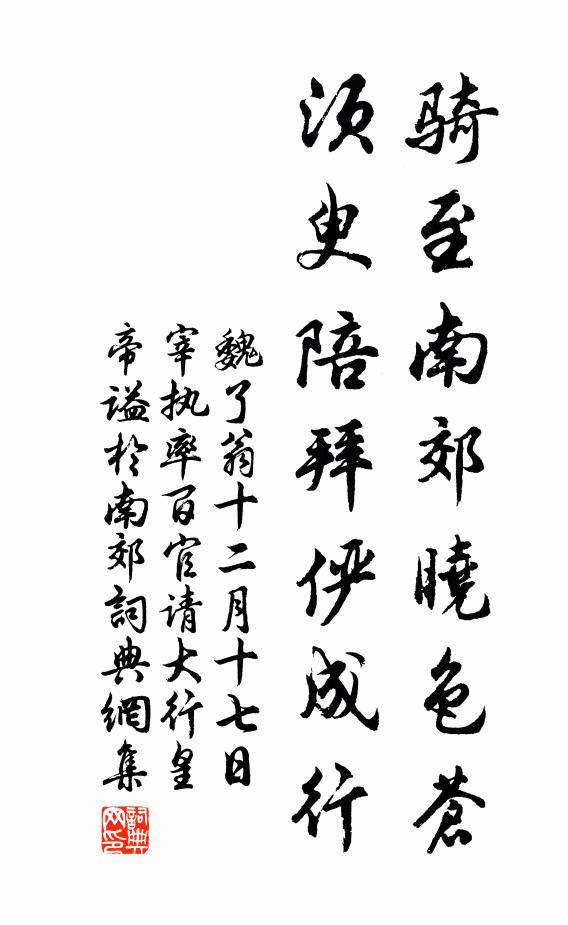 骑至南郊曉色蒼
须臾陪拜俨成行
魏了翁十二月十七日
宰执率百官请大行皇
帝谥於南郊詞典網集
詞典网印